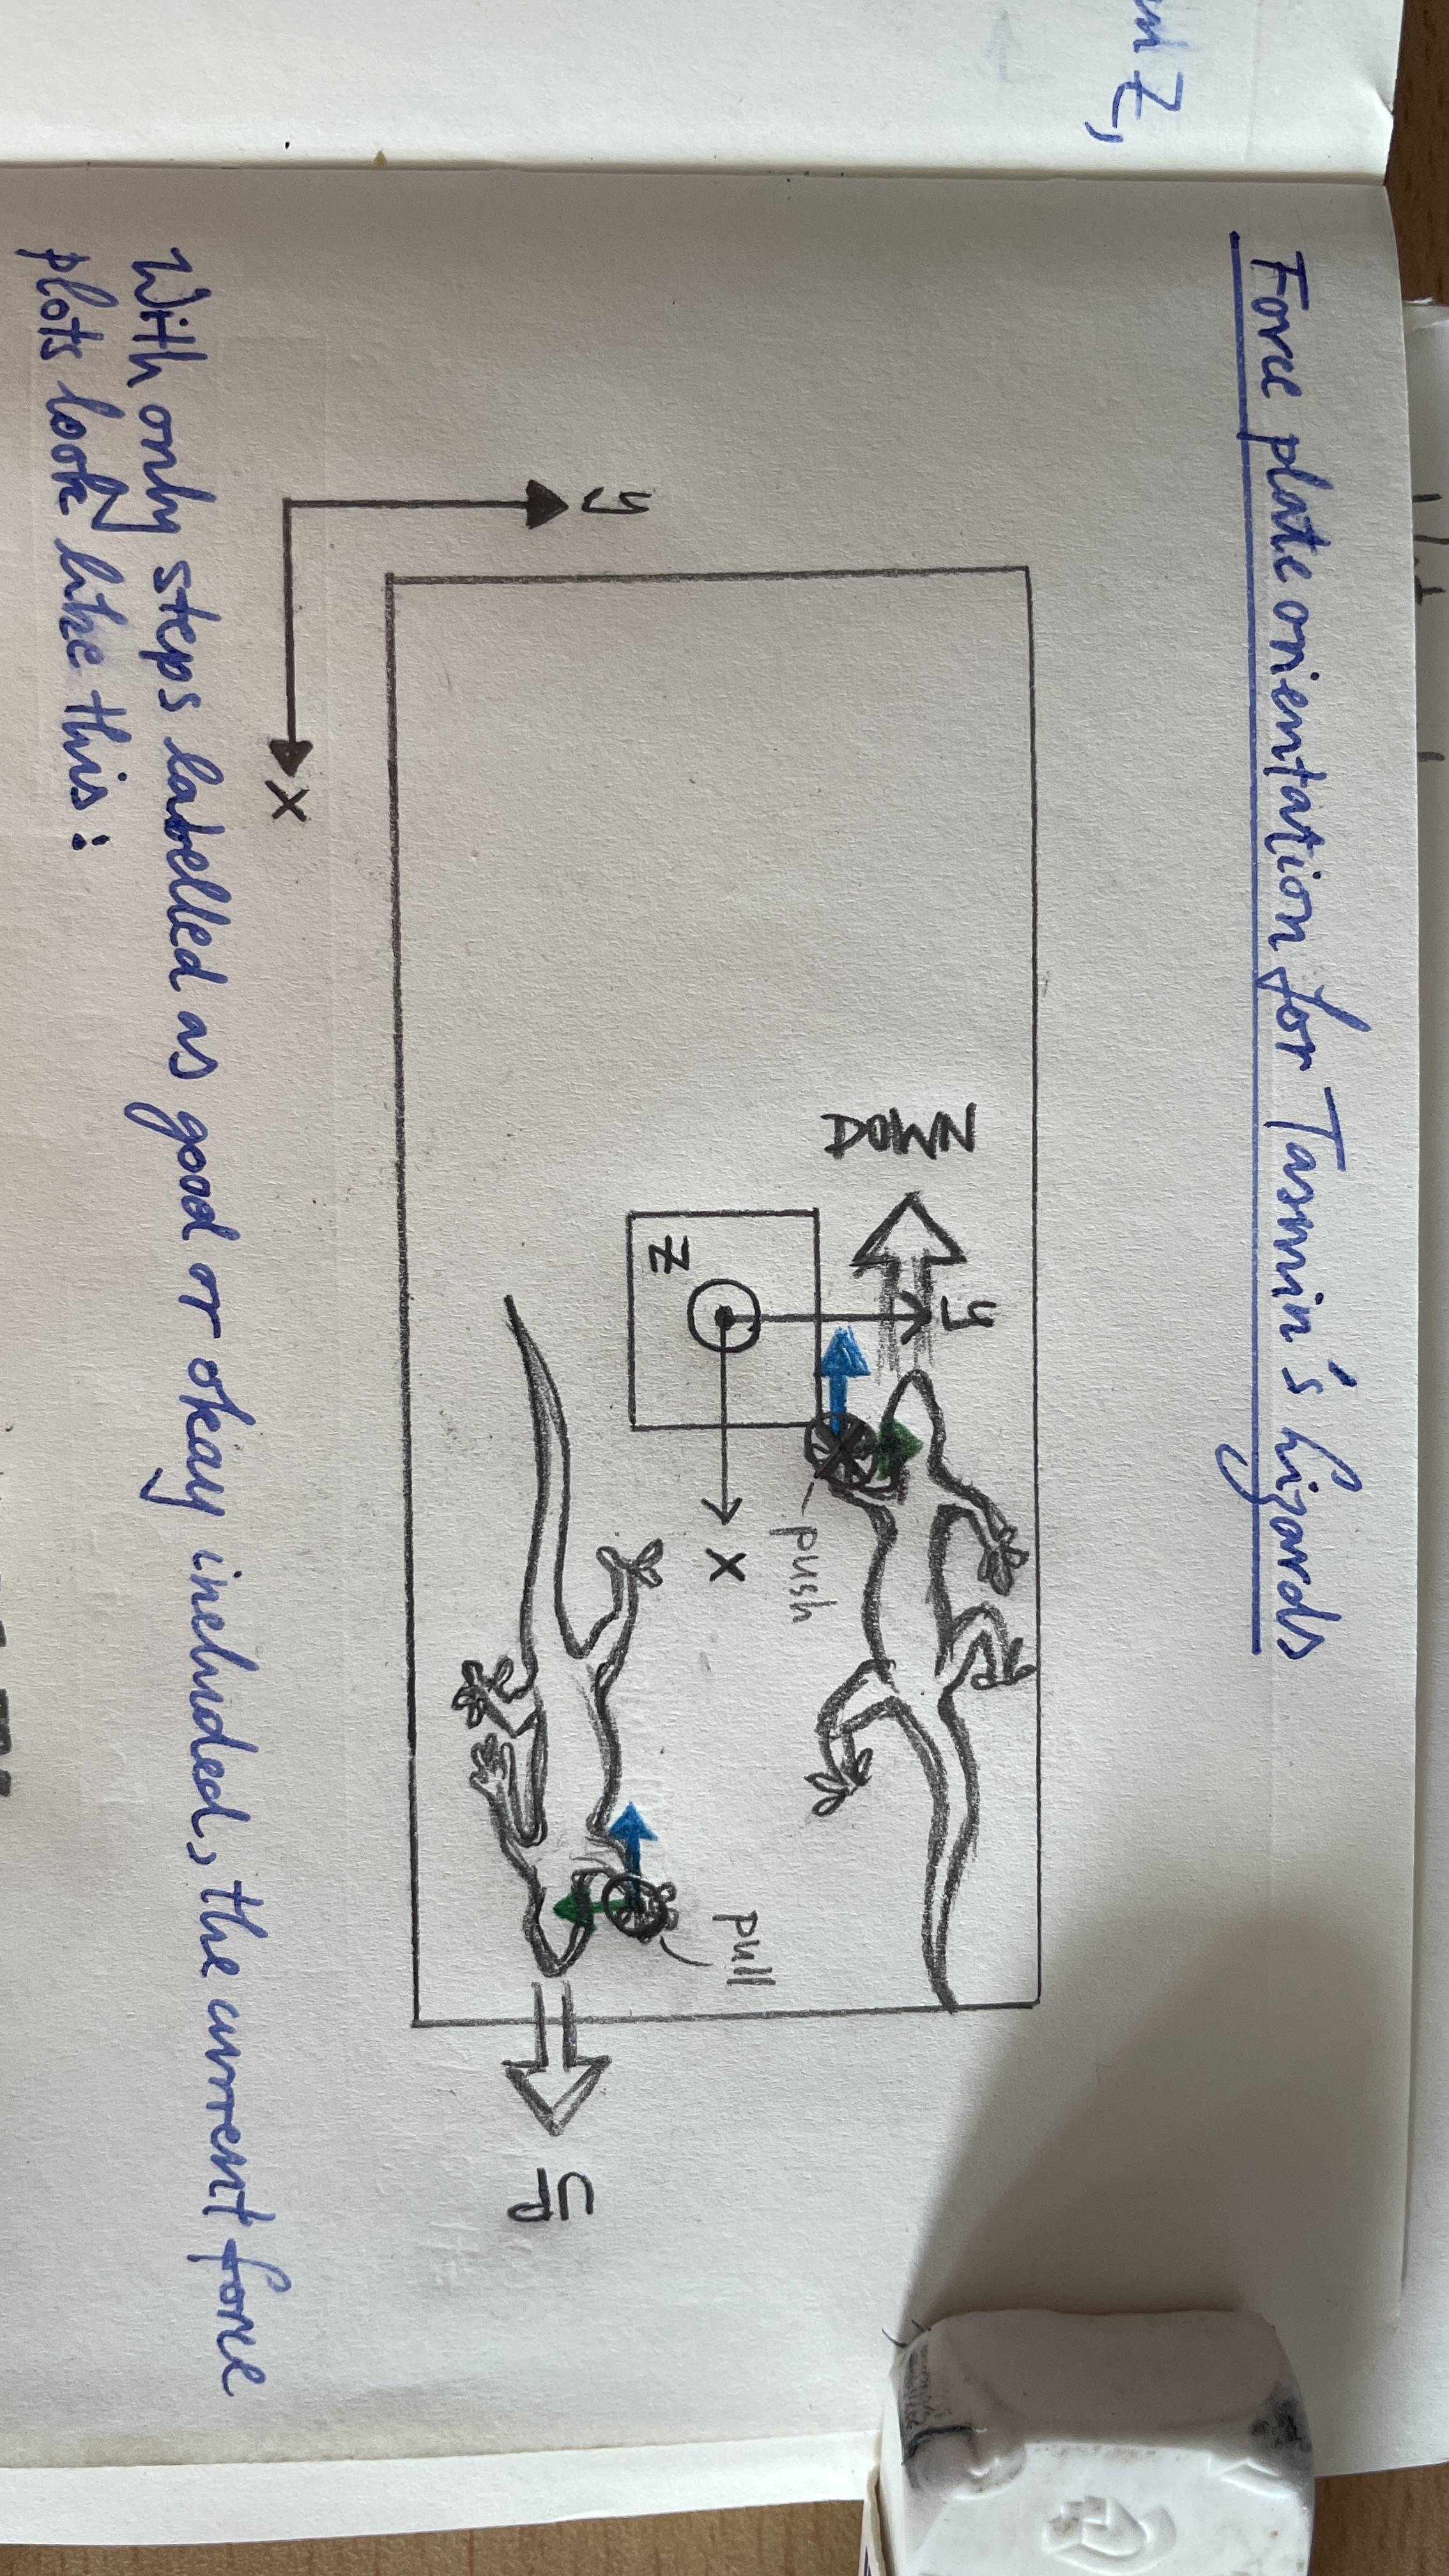 and Z,
Force plate orientation for Tasmin's Lizards
DOWN
y
y
Z
push
X
pull
UP
X
With only steps labelled as good or okay included, the current force
plots look like this: